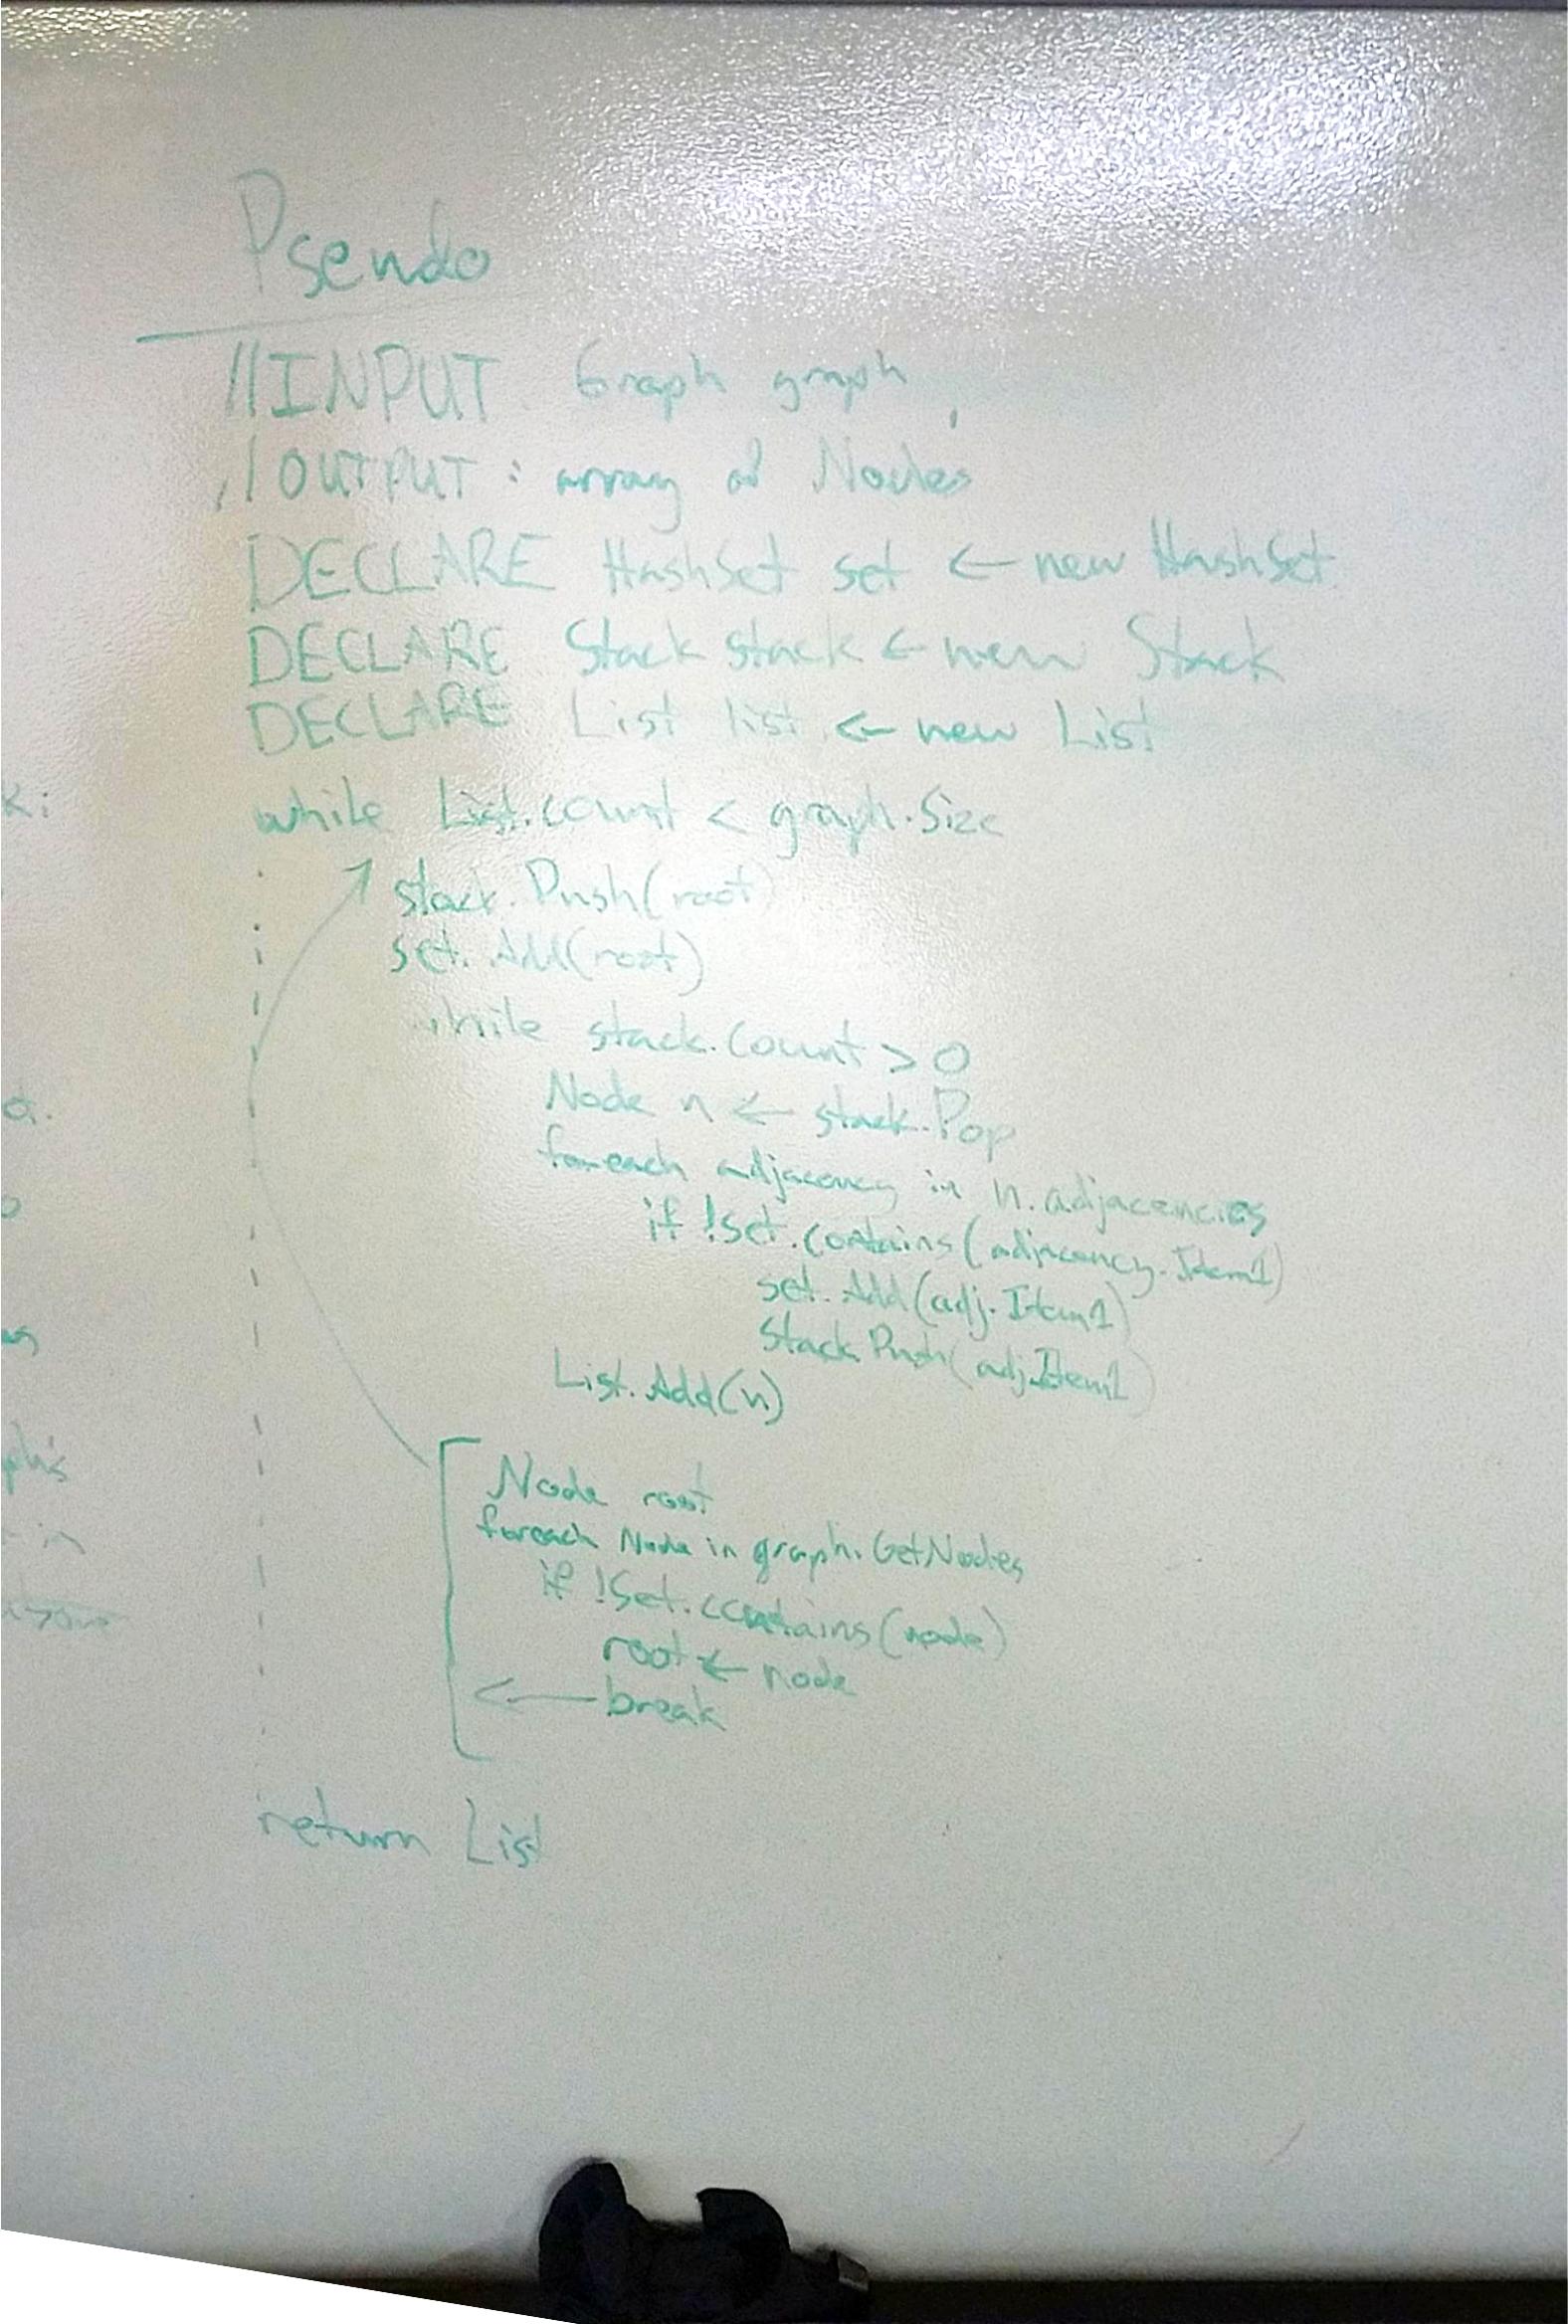 Pseudo
//INPUT Graph graph,
//OUTPUT: array of Nodes
DECLARE HashSet set ← new HashSet
DECLARE Stack stack ← new Stack
DECLARE List list ← new List
while List.count < graph.Size
stack.Push(root)
set.Add(root)
while stack.Count > 0
Node n ← stack.Pop
foreach adjacency in n.adjacencies
if !set.contains(adjacency.Item1)
set.Add(adj.Item1)
Stack.Push(adj.Item1)
List.Add(n)
Node root
foreach Node in graph.GetNodes
if !Set.contains(node)
root ← node
← break
return List